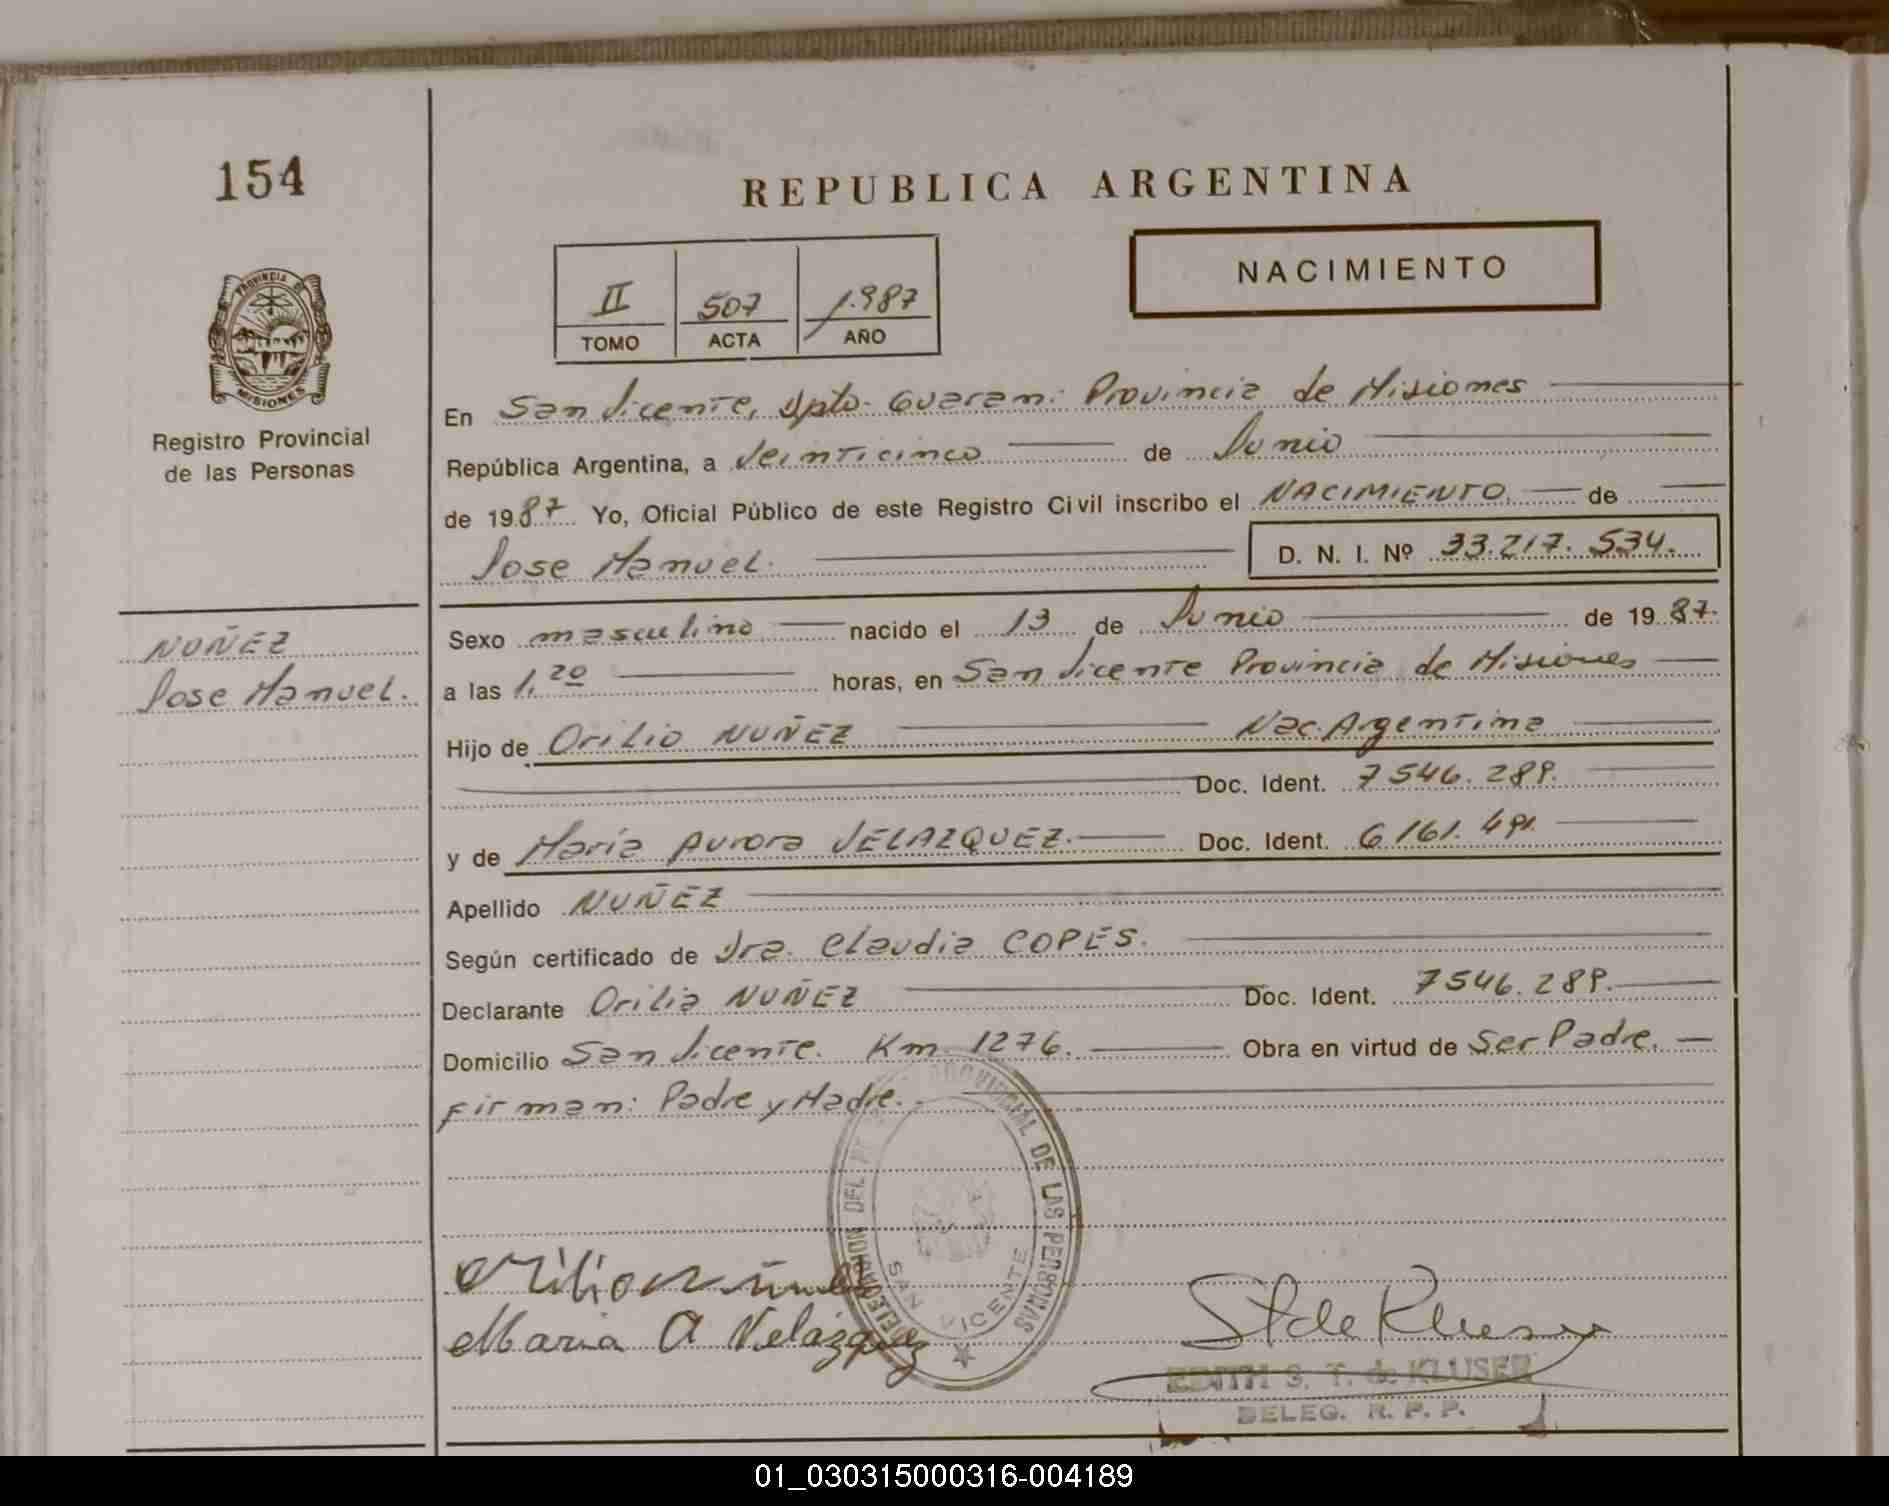 154
REPUBLICA ARGENTINA
NACIMIENTO
II 507 1.987
TOMO ACTA AÑO
PROVINCIA DE MISIONES
Registro Provincial
de las Personas
En San Vicente, Dpto. Guaraní Provincia de Misiones
República Argentina, a Veinticinco de Junio
de 1987 Yo, Oficial Público de este Registro Civil inscribo el NACIMIENTO. de
Jose Manuel. D. N. I. Nº 33.217.534.
NUÑEZ
Jose Manuel.
Sexo masculino nacido el 13 de Junio de 1987.
a las 1.20 horas, en San Vicente Provincia de Misiones
Hijo de Orilio NUÑEZ Nac. Argentina
Doc. Ident. 7546.289.
y de María Aurora VELAZQUEZ. Doc. Ident. 6161.491.
Apellido NUÑEZ
Según certificado de Dra. Claudia COPES.
Declarante Orilio NUÑEZ Doc. Ident. 7546.289.
Domicilio San Vicente. Km. 1276. Obra en virtud de Ser Padre.
Firman: Padre y Madre.
DELEGACION DEL REGISTRO PROVINCIAL DE LAS PERSONAS
SAN VICENTE
Orilio Nuñez
Maria A Velázquez
S T de Kluser
EDITH S. T. de KLUSER
DELEG. R. P. P.
01_030315000316-004189